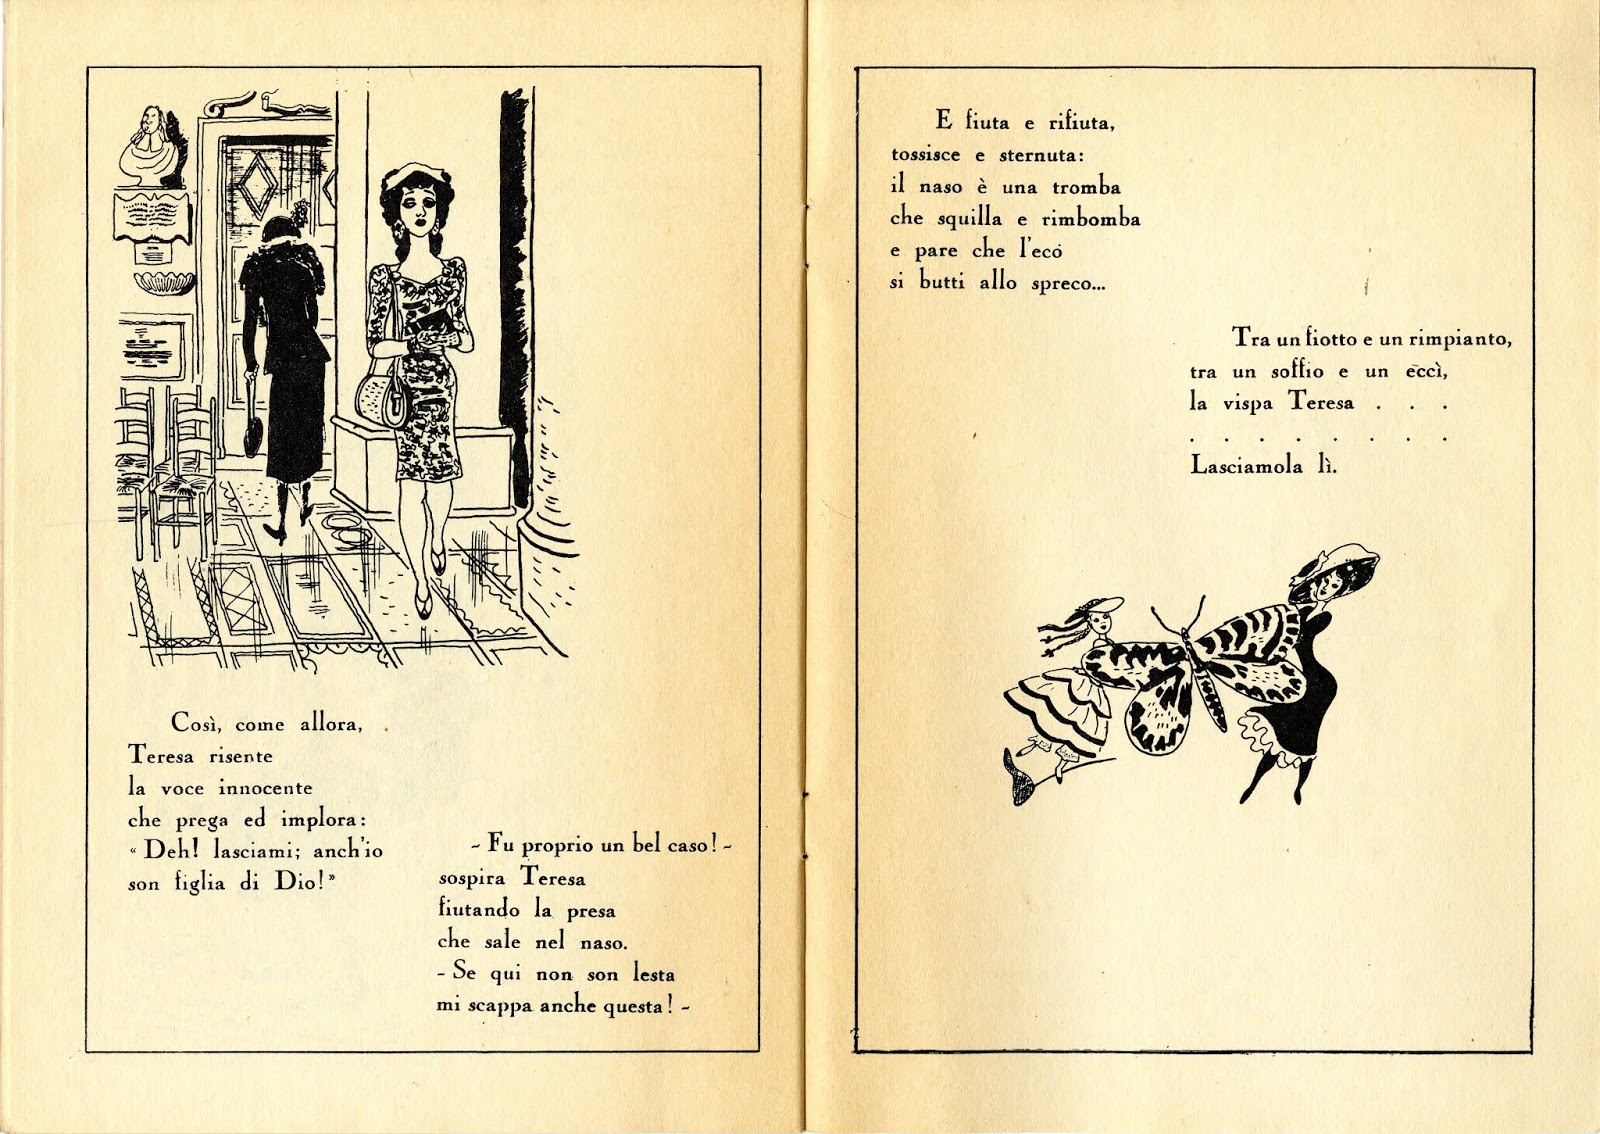 Così, come allora,
Teresa risente
la voce innocente
che prega ed implora:
« Deh! lasciami; anch'io
son figlia di Dio! »
- Fu proprio un bel caso! -
sospira Teresa
fiutando la presa
che sale nel naso.
- Se qui non son lesta
mi scappa anche questa! -
E fiuta e rifiuta,
tossisce e sternuta:
il naso è una tromba
che squilla e rimbomba
e pare che l'eco
si butti allo spreco...
Tra un fiotto e un rimpianto,
tra un soffio e un eccì,
la vispa Teresa . . .
. . . . . . . .
Lasciamola lì.